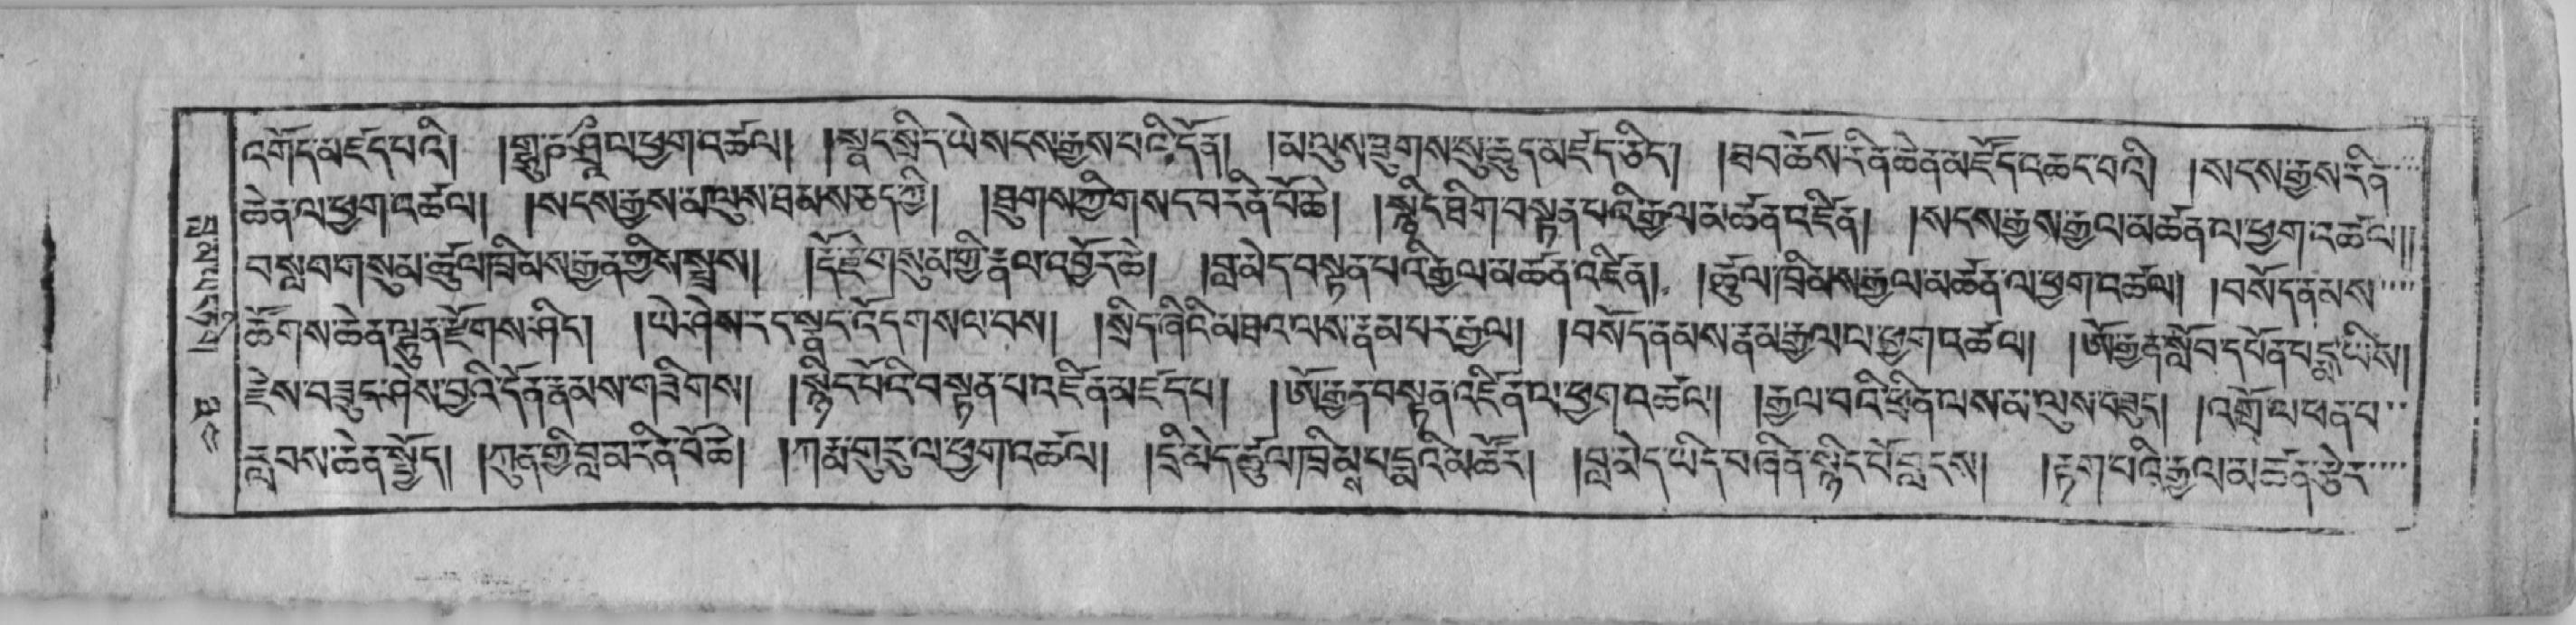 འགོད་མཛད་པའི། །གུ་ཎ་ཤྲཱི་ལ་ཕྱག་འཚལ། །སྣང་སྲིད་ཡེ་སངས་རྒྱས་པའི་དོན། །མ་ལུས་ཐུགས་སུ་ཆུད་མཛད་ཅིད། །ཟབ་ཆོས་རིན་ཆེན་མཛོད་འཆང་བའི། །སངས་རྒྱས་རིན
ཆེན་ལ་ཕྱག་འཚལ། །སངས་རྒྱས་མ་ལུས་ཐམས་ཅད་ཀྱི། །ཐུགས་ཀྱི་གསང་བ་རིན་པོ་ཆེ། །སྙིང་ཐིག་བསྟན་པའི་རྒྱལ་མཚན་འཛིན། །སངས་རྒྱས་རྒྱལ་མཚན་ལ་ཕྱག་འཚལ།།
བསླབ་གསུམ་ཚུལ་ཁྲིམས་རྒྱན་གྱིས་སྤྲས། །རྡོ་རྗེ་གསུམ་གྱི་རྣལ་འབྱོར་ཆེ། །བླ་མེད་བསྟན་པའི་རྒྱལ་མཚན་འཛིན། །ཚུལ་ཁྲིམས་རྒྱལ་མཚན་ལ་ཕྱག་འཚལ། །བསོད་ནམས
ཚོགས་ཆེན་ལྷུན་རྫོགས་ཤིང། །ཡེ་ཤེས་རང་སྣང་འོད་གསལ་བས། །སྲིད་ཞིའི་མཐའ་ལས་རྣམ་པར་རྒྱལ། །བསོད་ནམས་རྣམ་རྒྱལ་ལ་ཕྱག་འཚལ། །ཨོ་རྒྱན་སློབ་དཔོན་པདྨ་ཡིས།
རྗེས་བཟུང་ཤེས་བྱའི་དོན་རྣམས་གཟིགས། །སྙིང་པོའི་བསྟན་པ་འཛིན་མཛད་པ། །ཨོ་རྒྱན་བསྟན་འཛིན་ལ་ཕྱག་འཚལ། །རྒྱལ་བའི་ཕྲིན་ལས་མ་ལུས་བཟུང། །འགྲོ་ལ་ཕན་པ
རླབས་ཆེན་སྤྱོད། །ཀུན་གྱི་བླ་མ་རིན་པོ་ཆེ། །ཀརྨ་གུ་རུ་ལ་ཕྱག་འཚལ། །དྲི་མེད་ཚུལ་ཁྲིམས་པདྨའི་མཚོར། །བླ་མེད་ཡིད་བཞིན་སྙིང་པོ་བླངས། །རྟག་པའི་རྒྱལ་མཚན་ཅེར